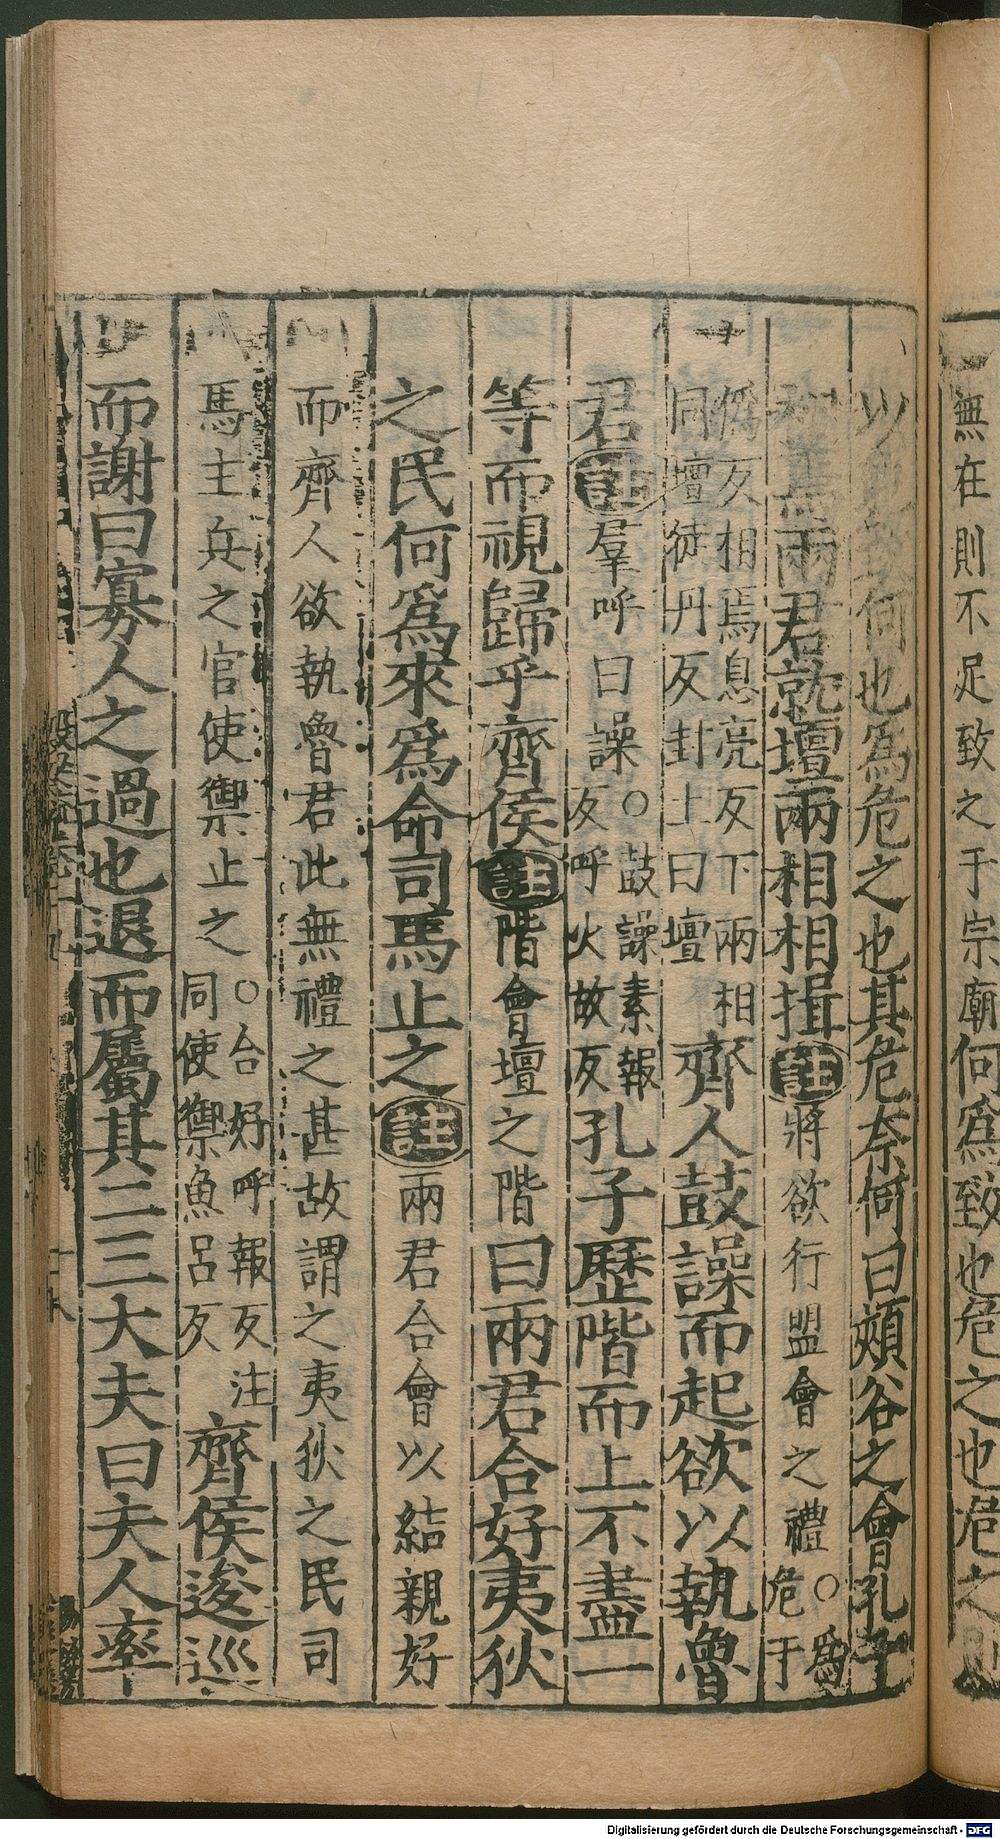 無在則不足致之于宗廟何爲致也危之也危之則
以致何也爲危之也其危奈何曰頰谷之會孔子
相焉兩君就壇兩相相揖註將欲行盟會之禮○爲危于
僞反相焉息亮反下兩相同壇徒丹反封土曰壇齊人鼓譟而起欲以執魯
君註羣呼曰譟○鼓譟素報反呼火故反孔子歷階而上不盡一
等而視歸乎齊侯註階會壇之階曰兩君合好夷狄
之民何爲來爲命司馬止之註兩君合會以結親好
而齊人欲執魯君此無禮之甚故謂之夷狄之民司
馬主兵之官使禦止之○合好呼報反注同使禦魚呂反齊侯逡巡
而謝曰寡人之過也退而屬其二三大夫曰夫人率
Digitalisierung gefördert durch die Deutsche Forschungsgemeinschaft - DFG